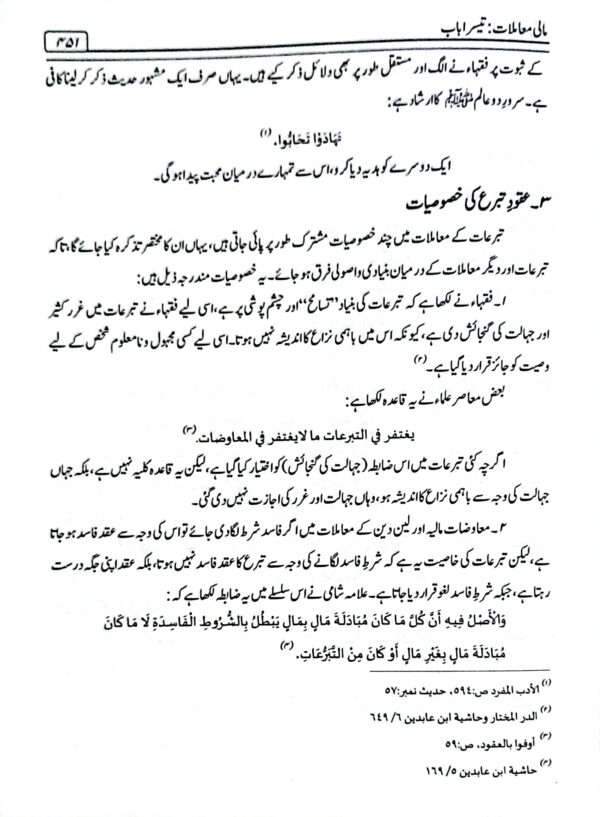 مالی معاملات: تیسرا باب
۴۵۱
کے ثبوت پر فقہاء نے الگ اور مستقل طور پر بھی دلائل ذکر کیے ہیں۔ یہاں صرف ایک مشہور حدیث ذکر کر لینا کافی
ہے۔ سرورِ دو عالم ﷺ کا ارشاد ہے:
تَهَادَوْا تَحَابُّوا. (۱)
ایک دوسرے کو ہدیہ دیا کرو، اس سے تمہارے درمیان محبت پیدا ہوگی۔
۳۔ عقودِ تبرع کی خصوصیات
تبرعات کے معاملات میں چند خصوصیات مشترک طور پر پائی جاتی ہیں، یہاں ان کا مختصر تذکرہ کیا جائے گا، تاکہ
تبرعات اور دیگر معاملات کے درمیان بنیادی و اصولی فرق ہو جائے۔ یہ خصوصیات مندرجہ ذیل ہیں:
۱۔ فقہاء نے لکھا ہے کہ تبرعات کی بنیاد ”تسامح“ اور چشم پوشی پر ہے، اسی لیے فقہاء نے تبرعات میں غررِ کثیر
اور جہالت کی گنجائش دی ہے، کیونکہ اس میں باہمی نزاع کا اندیشہ نہیں ہوتا۔ اسی لیے کسی مجہول و نامعلوم شخص کے لیے
وصیت کو جائز قرار دیا گیا ہے۔ (۲)
بعض معاصر علماء نے یہ قاعدہ لکھا ہے:
يغتفر في التبرعات ما لا يغتفر في المعاوضات. (۳)
اگرچہ کئی تبرعات میں اس ضابطہ (جہالت کی گنجائش) کو اختیار کیا گیا ہے، لیکن یہ قاعدہ کلیہ نہیں ہے، بلکہ جہاں
جہالت کی وجہ سے باہمی نزاع کا اندیشہ ہو، وہاں جہالت اور غرر کی اجازت نہیں دی گئی۔
۲۔ معاوضات مالیہ اور لین دین کے معاملات میں اگر فاسد شرط لگادی جائے تو اس کی وجہ سے عقد فاسد ہو جاتا
ہے، لیکن تبرعات کی خاصیت یہ ہے کہ شرطِ فاسد لگانے کی وجہ سے تبرع کا عقد فاسد نہیں ہوتا، بلکہ عقد اپنی جگہ درست
رہتا ہے، جبکہ شرطِ فاسد لغو قرار دیا جاتا ہے۔ علامہ شامی نے اس سلسلے میں یہ ضابطہ لکھا ہے کہ:
وَالْأَصْلُ فِيهِ أَنَّ كُلَّ مَا كَانَ مُبَادَلَةَ مَالٍ بِمَالٍ يَبْطُلُ بِالشُّرُوطِ الْفَاسِدَةِ لَا مَا كَانَ
مُبَادَلَةَ مَالٍ بِغَيْرِ مَالٍ أَوْ كَانَ مِنْ التَّبَرُّعَاتِ. (۴)
(۱) الأدب المفرد ص:۵۹۴، حدیث نمبر:۵۷
(۲) الدر المختار وحاشية ابن عابدين ۶/ ۶۴۹
(۳) أوفوا بالعقود، ص:۵۹
(۴) حاشية ابن عابدين ۵/ ۱۶۹